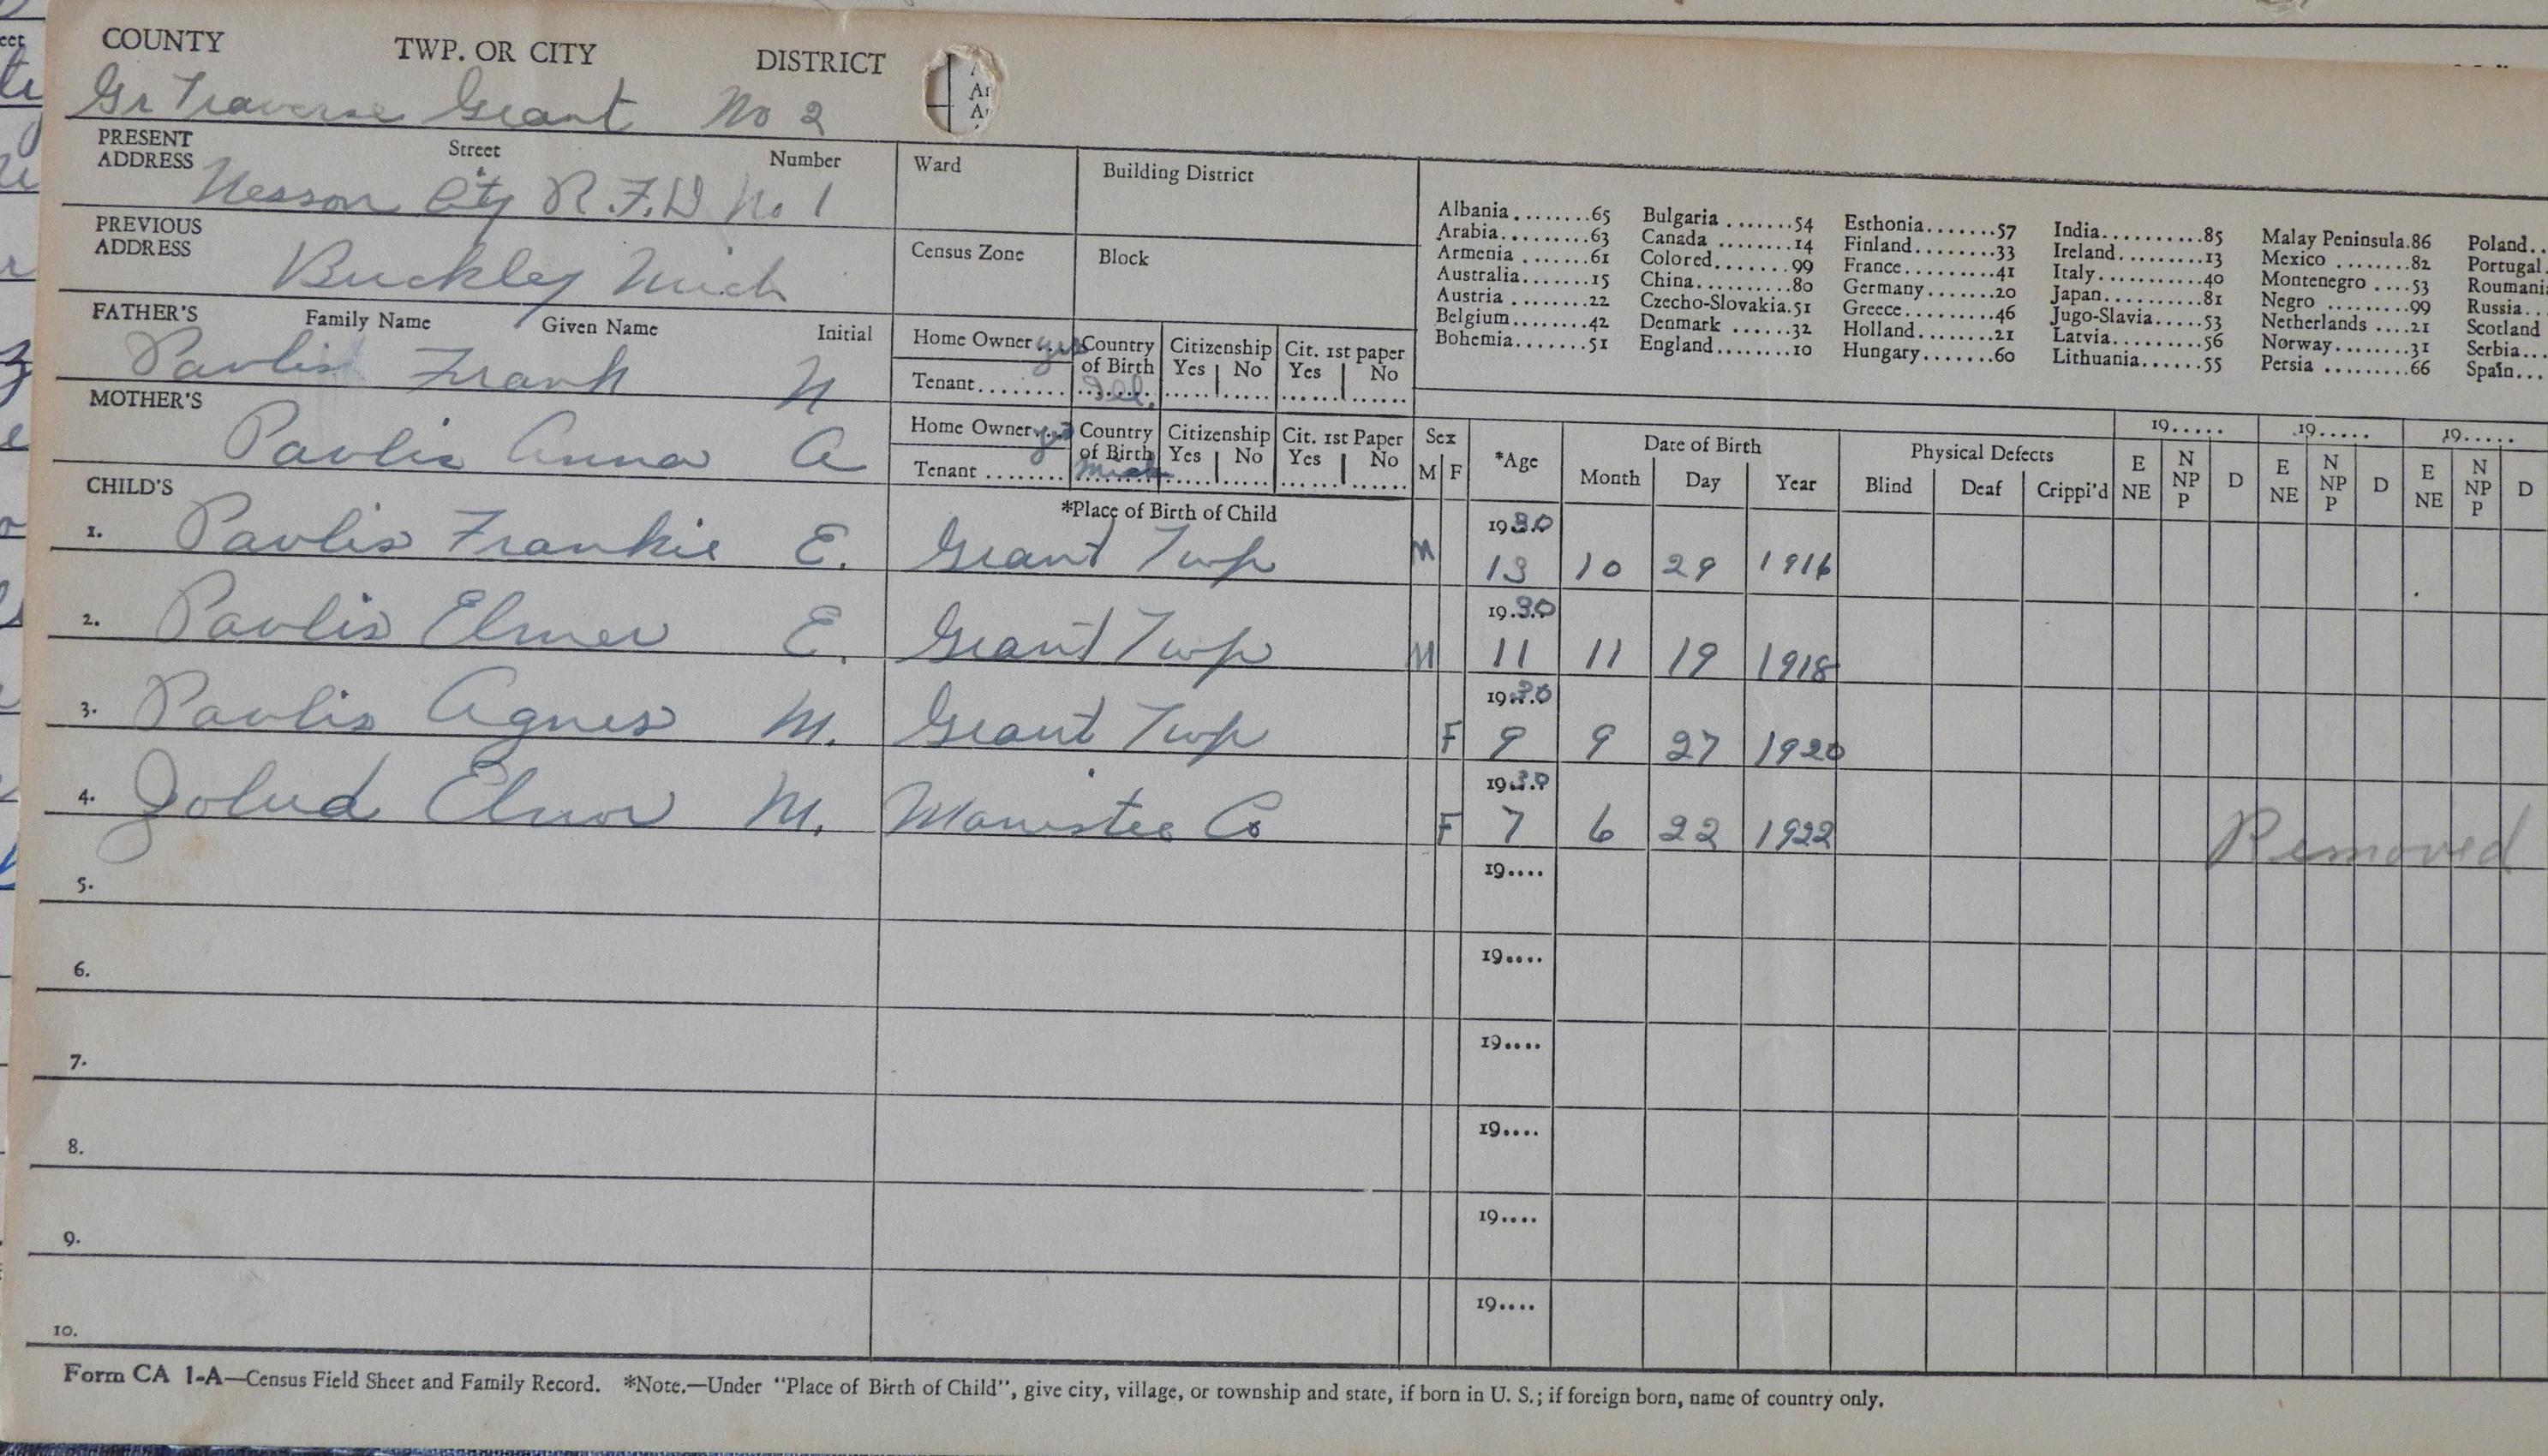 COUNTY TWP. OR CITY DISTRICT
Gr Traverse Grant No 2
PRESENT ADDRESS Street Number
Nesson City R.F.D. No 1
Ward Building District
PREVIOUS ADDRESS
Buckley Mich
Census Zone Block
FATHER'S Family Name Given Name Initial
Pavlis Frank N
Home Owner.. yes Country of Birth Citizenship Yes No Cit. 1st paper Yes No
Tenant........ Ill.
MOTHER'S
Pavlis Anna A
Home Owner.. yes Country of Birth Citizenship Yes No Cit. 1st Paper Yes No
Tenant........ Mich
Albania........65 Bulgaria.......54 Esthonia.......57 India..........85 Malay Peninsula.86 Poland..
Arabia.........63 Canada........14 Finland........33 Ireland.........13 Mexico........82 Portugal
Armenia.......61 Colored........99 France.........41 Italy...........40 Montenegro....53
Australia.......15 China..........80 Germany.......20 Japan..........81 Negro.........99 Russia..
Austria........22 Czecho-Slovakia.51 Greece.........46 Jugo-Slavia.....53 Netherlands....21 Scotland
Belgium........42 Denmark......32 Holland........21 Latvia..........56 Norway........31 Serbia...
Bohemia.......51 England........10 Hungary.......60 Lithuania......55 Persia.........66 Spain...
CHILD'S *Place of Birth of Child Sex M F *Age Date of Birth Month Day Year Physical Defects Blind Deaf Crippl'd 19..... E NE N NP P D 19..... E NE N NP P D 19..... E NE N NP P D
1. Pavlis Frankie E. Grant Twp M 1930 13 10 29 1916
2. Pavlis Elmer E. Grant Twp M 1930 11 11 19 1918
3. Pavlis Agnes M. Grant Twp F 1930 9 9 27 1920
4. Zolud Elnor M. Manistee Co F 1930 7 6 22 1922 Removed
5. 19....
6. 19....
7. 19....
8. 19....
9. 19....
10. 19....
Form CA 1-A—Census Field Sheet and Family Record. *Note.—Under "Place of Birth of Child", give city, village, or township and state, if born in U. S.; if foreign born, name of country only.